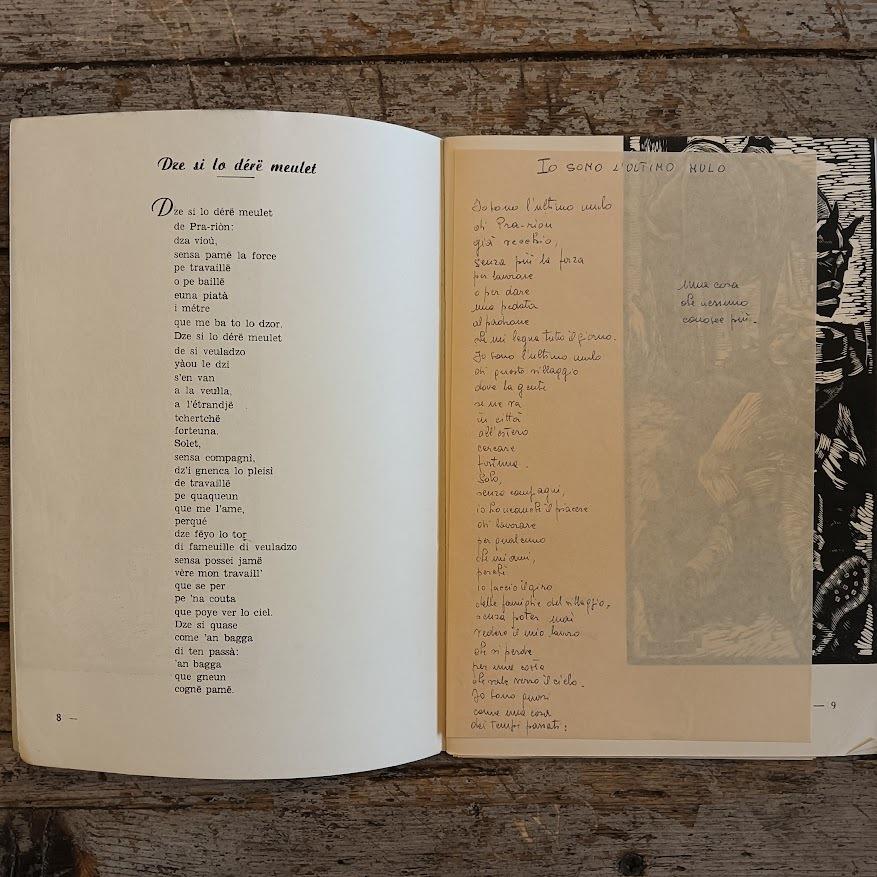 Dze si lo dérë meulet
Dze si lo dérë meulet
de Pra-riòn:
dza vioù,
sensa pamë la force
pe travaillë
o pe baillë
euna piatà
i métre
que me ba to lo dzor.
Dze si lo dérë meulet
de si veuladzo
yàou le dzi
s'en van
a la veulla,
a l'étrandjë
tchertchë
forteuna.
Solet,
sensa compagni,
dz'i gnenca lo pleisi
de travaillë
pe quaqueun
que me l'ame,
perqué
dze fëyo lo tor
di fameuille di veuladzo
sensa possei jamë
vère mon travaill'
que se per
pe 'na couta
que poye ver lo ciel.
Dze si quase
come 'an bagga
di ten passà:
'an bagga
que gneun
cognë pamë.
8 —
IO SONO L'ULTIMO MULO
Io sono l'ultimo mulo
di Pra-riòn
già vecchio,
senza più la forza
per lavorare
o per dare
una pedata
al padrone
che mi legna tutto il giorno.
Io sono l'ultimo mulo
di questo villaggio
dove la gente
se ne va
in città
all'estero
cercare
fortuna.
Solo,
senza compagni,
io ho neanche il piacere
di lavorare
per qualcuno
che mi ami,
perché
io faccio il giro
delle famiglie del villaggio,
senza poter mai
vedere il mio lavoro
che si perde
per una costa
che sale verso il cielo.
Io sono quasi
come una cosa
dei tempi passati:
una cosa
che nessuno
conosce più.
— 9